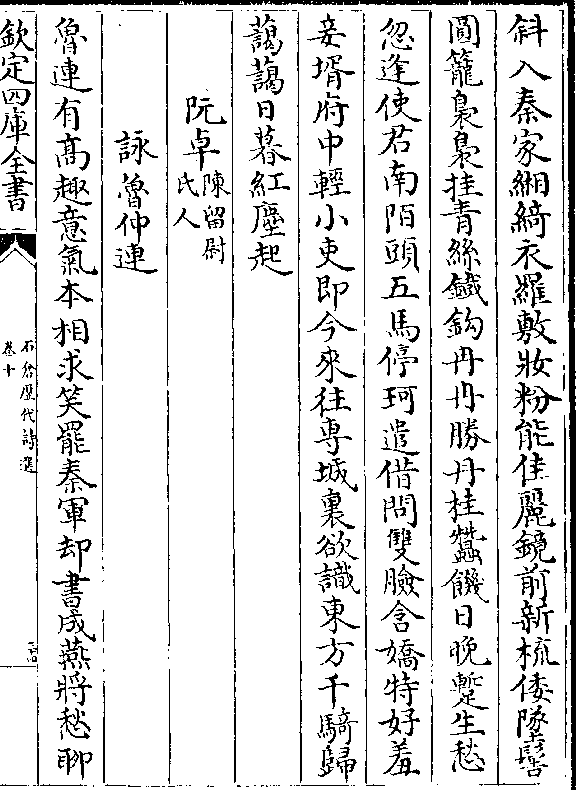 斜入秦家緗綺衣羅敷妝粉能佳麗鏡前新梳倭墮髻
圓籠裊裊挂青絲鐵鈎冉冉勝丹桂蠶饑日晚蹔生愁
忽逢使君南陌頭五馬停珂遣借問雙臉含嬌特好羞
妾壻府中輕小吏即今來往専城裏欲識東方千騎歸
藹藹日暮紅塵起
阮卓陳留尉氏人
詠魯仲連
魯連有髙趣意氣本相求笑罷秦軍却書成燕將愁聊
欽定四庫全書
石倉歷代詩選
卷十